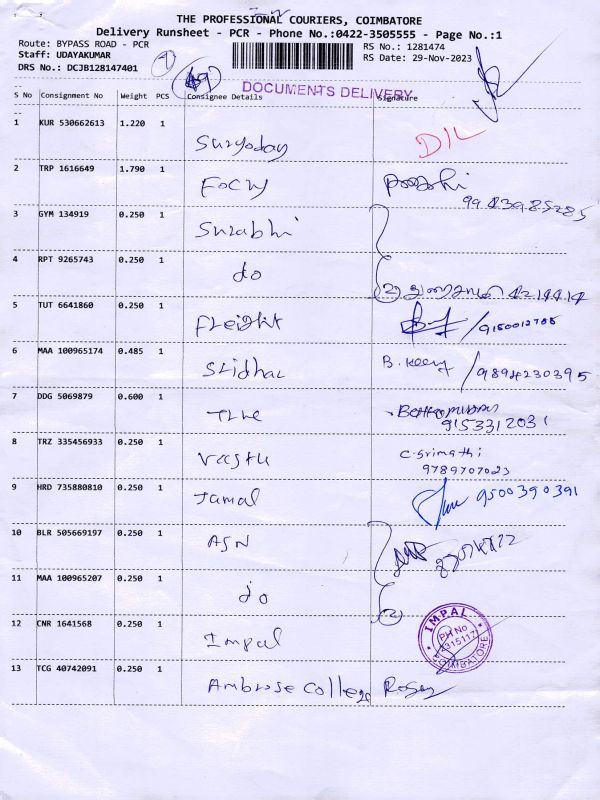 THE PROFESSIONAL COURIERS, COIMBATORE
Delivery Runsheet - PCR - Phone No.:0422-3505555 - Page No.:1
Route: BYPASS ROAD - PCR
RS No.: 1281474
Staff: UDAYAKUMAR
RS Date: 29-Nov-2023
DRS No.: DCJB128147401
DOCUMENTS DELIVERY
S No Consignment No Weight PCS Consignee Details Signature
1 KUR 530662613 1.220 1
Suryoday D/L
2 TRP 1616649 1.790 1
Focus
3 GYM 134919 0.250 1
Surabhi
4 RPT 9265743 0.250 1
do (2)
5 TUT 6641860 0.250 1
Freight
6 MAA 100965174 0.485 1
Sridhar /9894230395
7 DDG 5069879 0.600 1
9153312031
8 TRZ 335456933 0.250 1
Vastu C. Srimathi
9789707023
9 HRD 735880810 0.250 1
Jamal 9500390391
10 BLR 505669197 0.250 1
ASN
11 MAA 100965207 0.250 1
do (2)
12 CNR 1641568 0.250 1
Impal IMPAL PH No COIMBATORE
13 TCG 40742091 0.250 1
Ambrose College